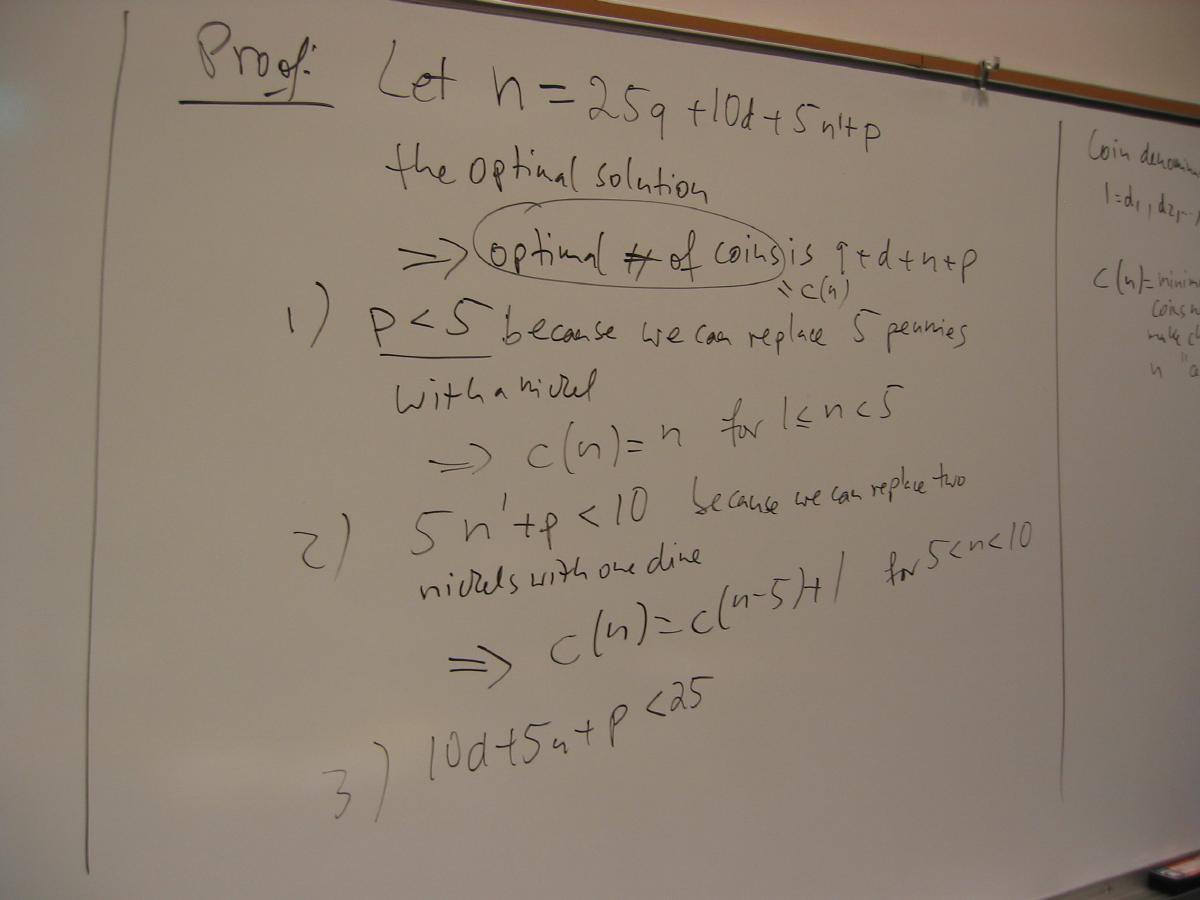 Proof: Let n = 25q + 10d + 5n' + p
the optimal solution
⇒ optimal # of coins is q + d + n + p
= c(n)
1) p < 5 because we can replace 5 pennies
with a nickel
⇒ c(n) = n for 1 ≤ n < 5
2) 5n' + p < 10 because we can replace two
nickels with one dime
⇒ c(n) = c(n-5) + 1 for 5 < n < 10
3) 10d + 5n + p < 25
Coin
1 = d1, d2, ..,
c(n) =
coins
n